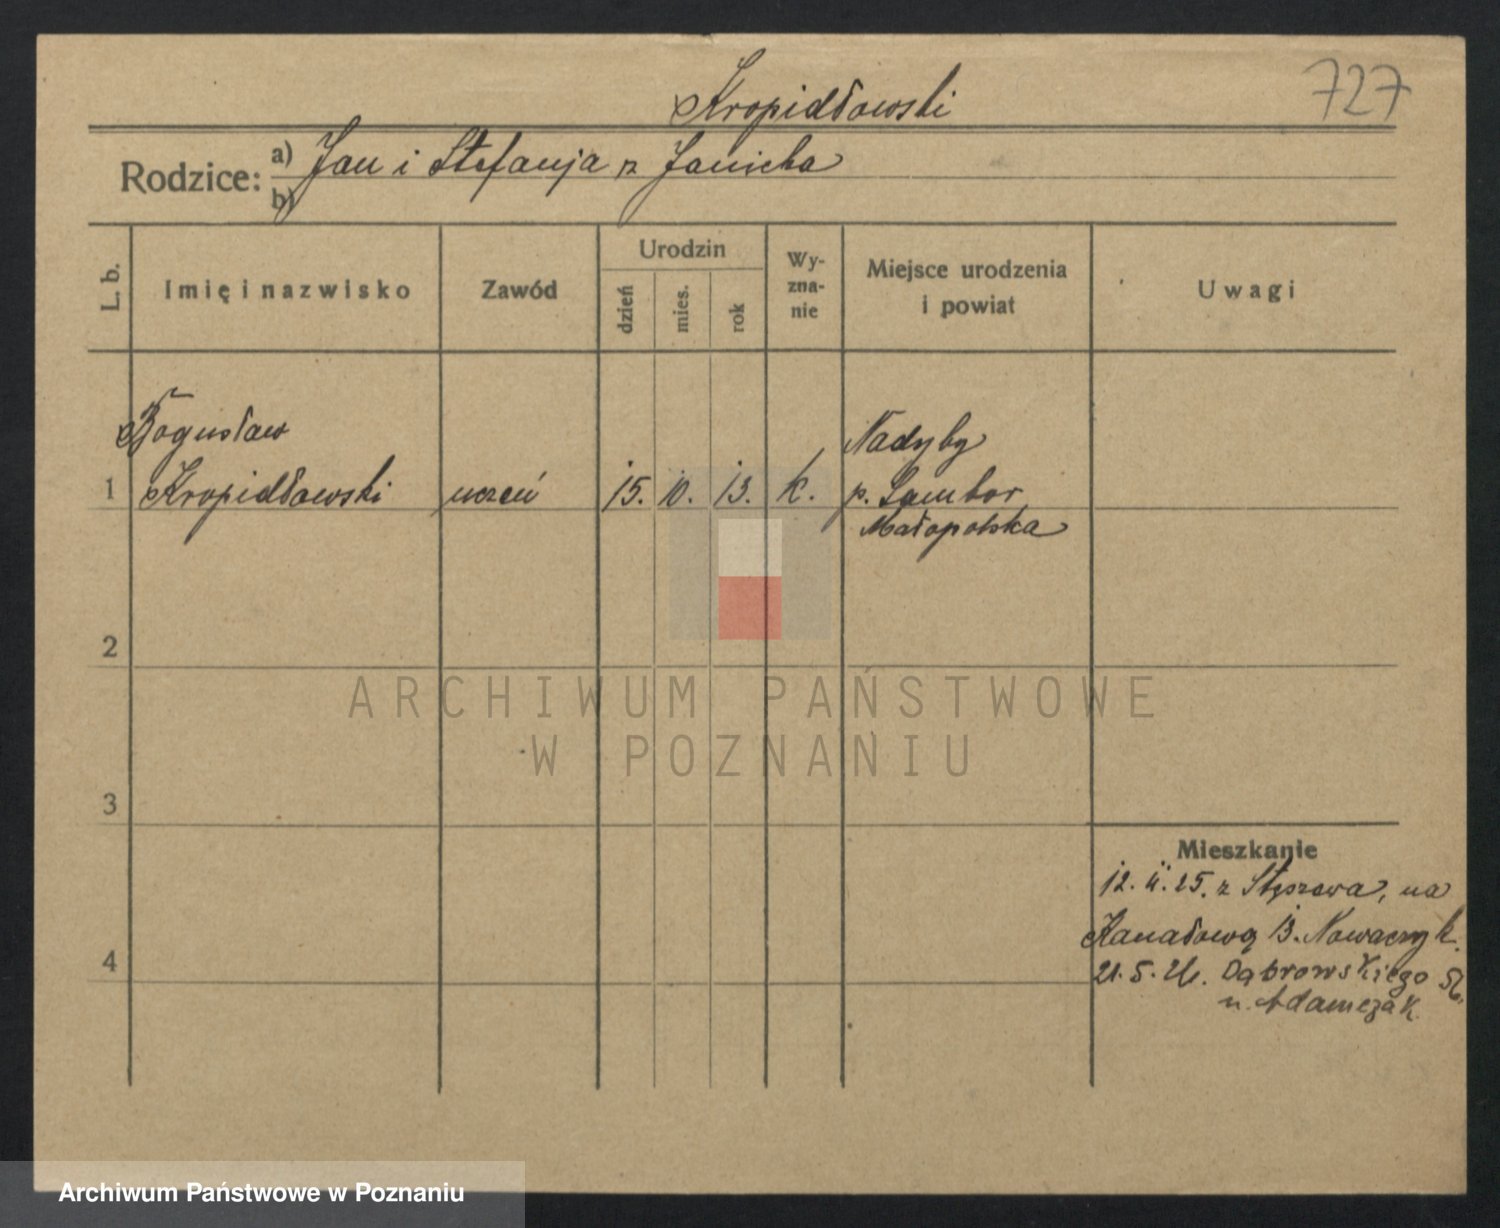 727
Kropidłowski
Rodzice: a) Jan i Stefanja z Janicka
b)
L. b. Imię i nazwisko Zawód Urodzin dzień mies. rok Wy-zna-nie Miejsce urodzenia i powiat Uwagi
Bogusław Nadyby
1 Kropidłowski uczeń 15. 10. 13. k. p. Sambor
Małopolska
2
ARCHIWUM PAŃSTWOWE
W POZNANIU
3
Mieszkanie
12. 2. 25. z Stęszewa, na
Kanałową 13. Nowaczyk.
4
21. 5. 26. Dąbrowskiego 56.
u. Adamczak
Archiwum Państwowe w Poznaniu